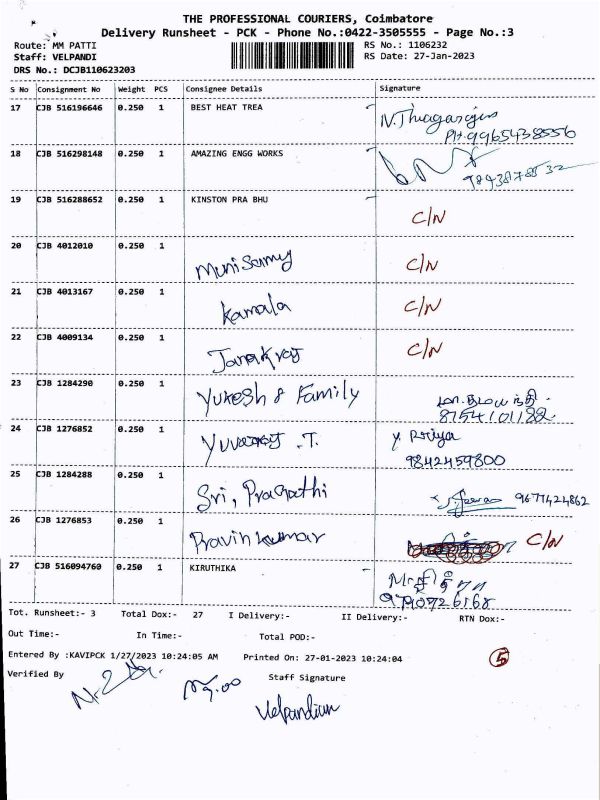 THE PROFESSIONAL COURIERS, Coimbatore
Delivery Runsheet - PCK - Phone No.:0422-3505555 - Page No.:3
Route: MM PATTI RS No.: 1106232
Staff: VELPANDI RS Date: 27-Jan-2023
DRS No.: DCJB110623203
S No Consignment No Weight PCS Consignee Details Signature
17 CJB 516196646 0.250 1 BEST HEAT TREA N.Thiagarajan
Ph.9965438556
18 CJB 516298148 0.250 1 AMAZING ENGG WORKS
9843878532
19 CJB 516288652 0.250 1 KINSTON PRA BHU C/N
20 CJB 4012010 0.250 1 Muni Samy C/N
21 CJB 4013167 0.250 1 Kamala C/N
22 CJB 4009134 0.250 1 Janakraj C/N
23 CJB 1284290 0.250 1 Yukesh & Family
24 CJB 1276852 0.250 1 Yuvaraj .T. Y. Priya
9842459800
25 CJB 1284288 0.250 1 Sri, Pragathi 9677424862
26 CJB 1276853 0.250 1 Pravin kumar C/N
27 CJB 516094760 0.250 1 KIRUTHIKA
9790726168
Tot. Runsheet:- 3 Total Dox:- 27 I Delivery:- II Delivery:- RTN Dox:-
Out Time:- In Time:- Total POD:-
Entered By :KAVIPCK 1/27/2023 10:24:05 AM Printed On: 27-01-2023 10:24:04 5
Verified By Staff Signature
Velpandian